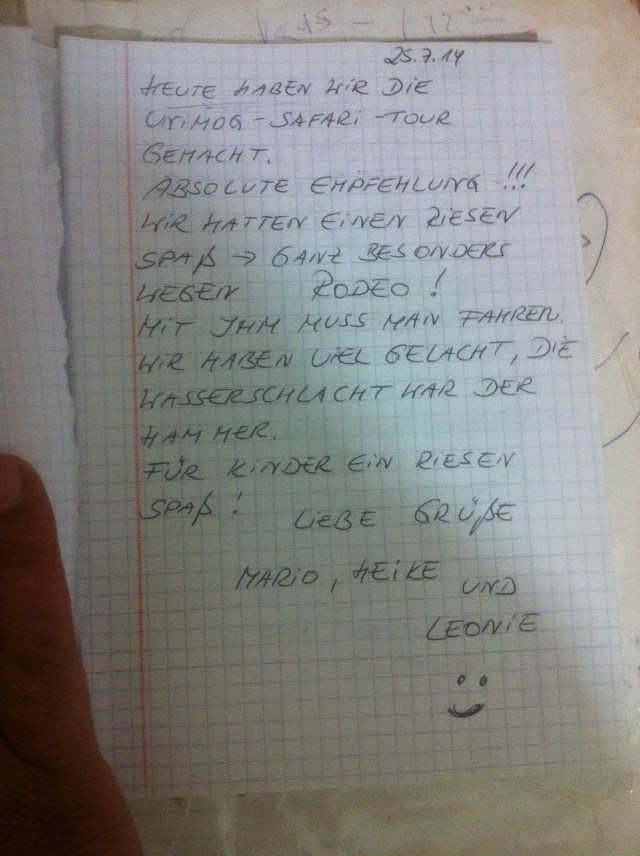 25.7.14
HEUTE HABEN WIR DIE
UNIMOG-SAFARI-TOUR
GEMACHT.
ABSOLUTE EMPFEHLUNG !!!
WIR HATTEN EINEN RIESEN
SPAß → GANZ BESONDERS
WEGEN RODEO !
MIT IHM MUSS MAN FAHREN.
WIR HABEN VIEL GELACHT, DIE
WASSERSCHLACHT WAR DER
HAMMER.
FÜR KINDER EIN RIESEN
SPAß !
LIEBE GRÜßE
MARIO, HEIKE UND
LEONIE